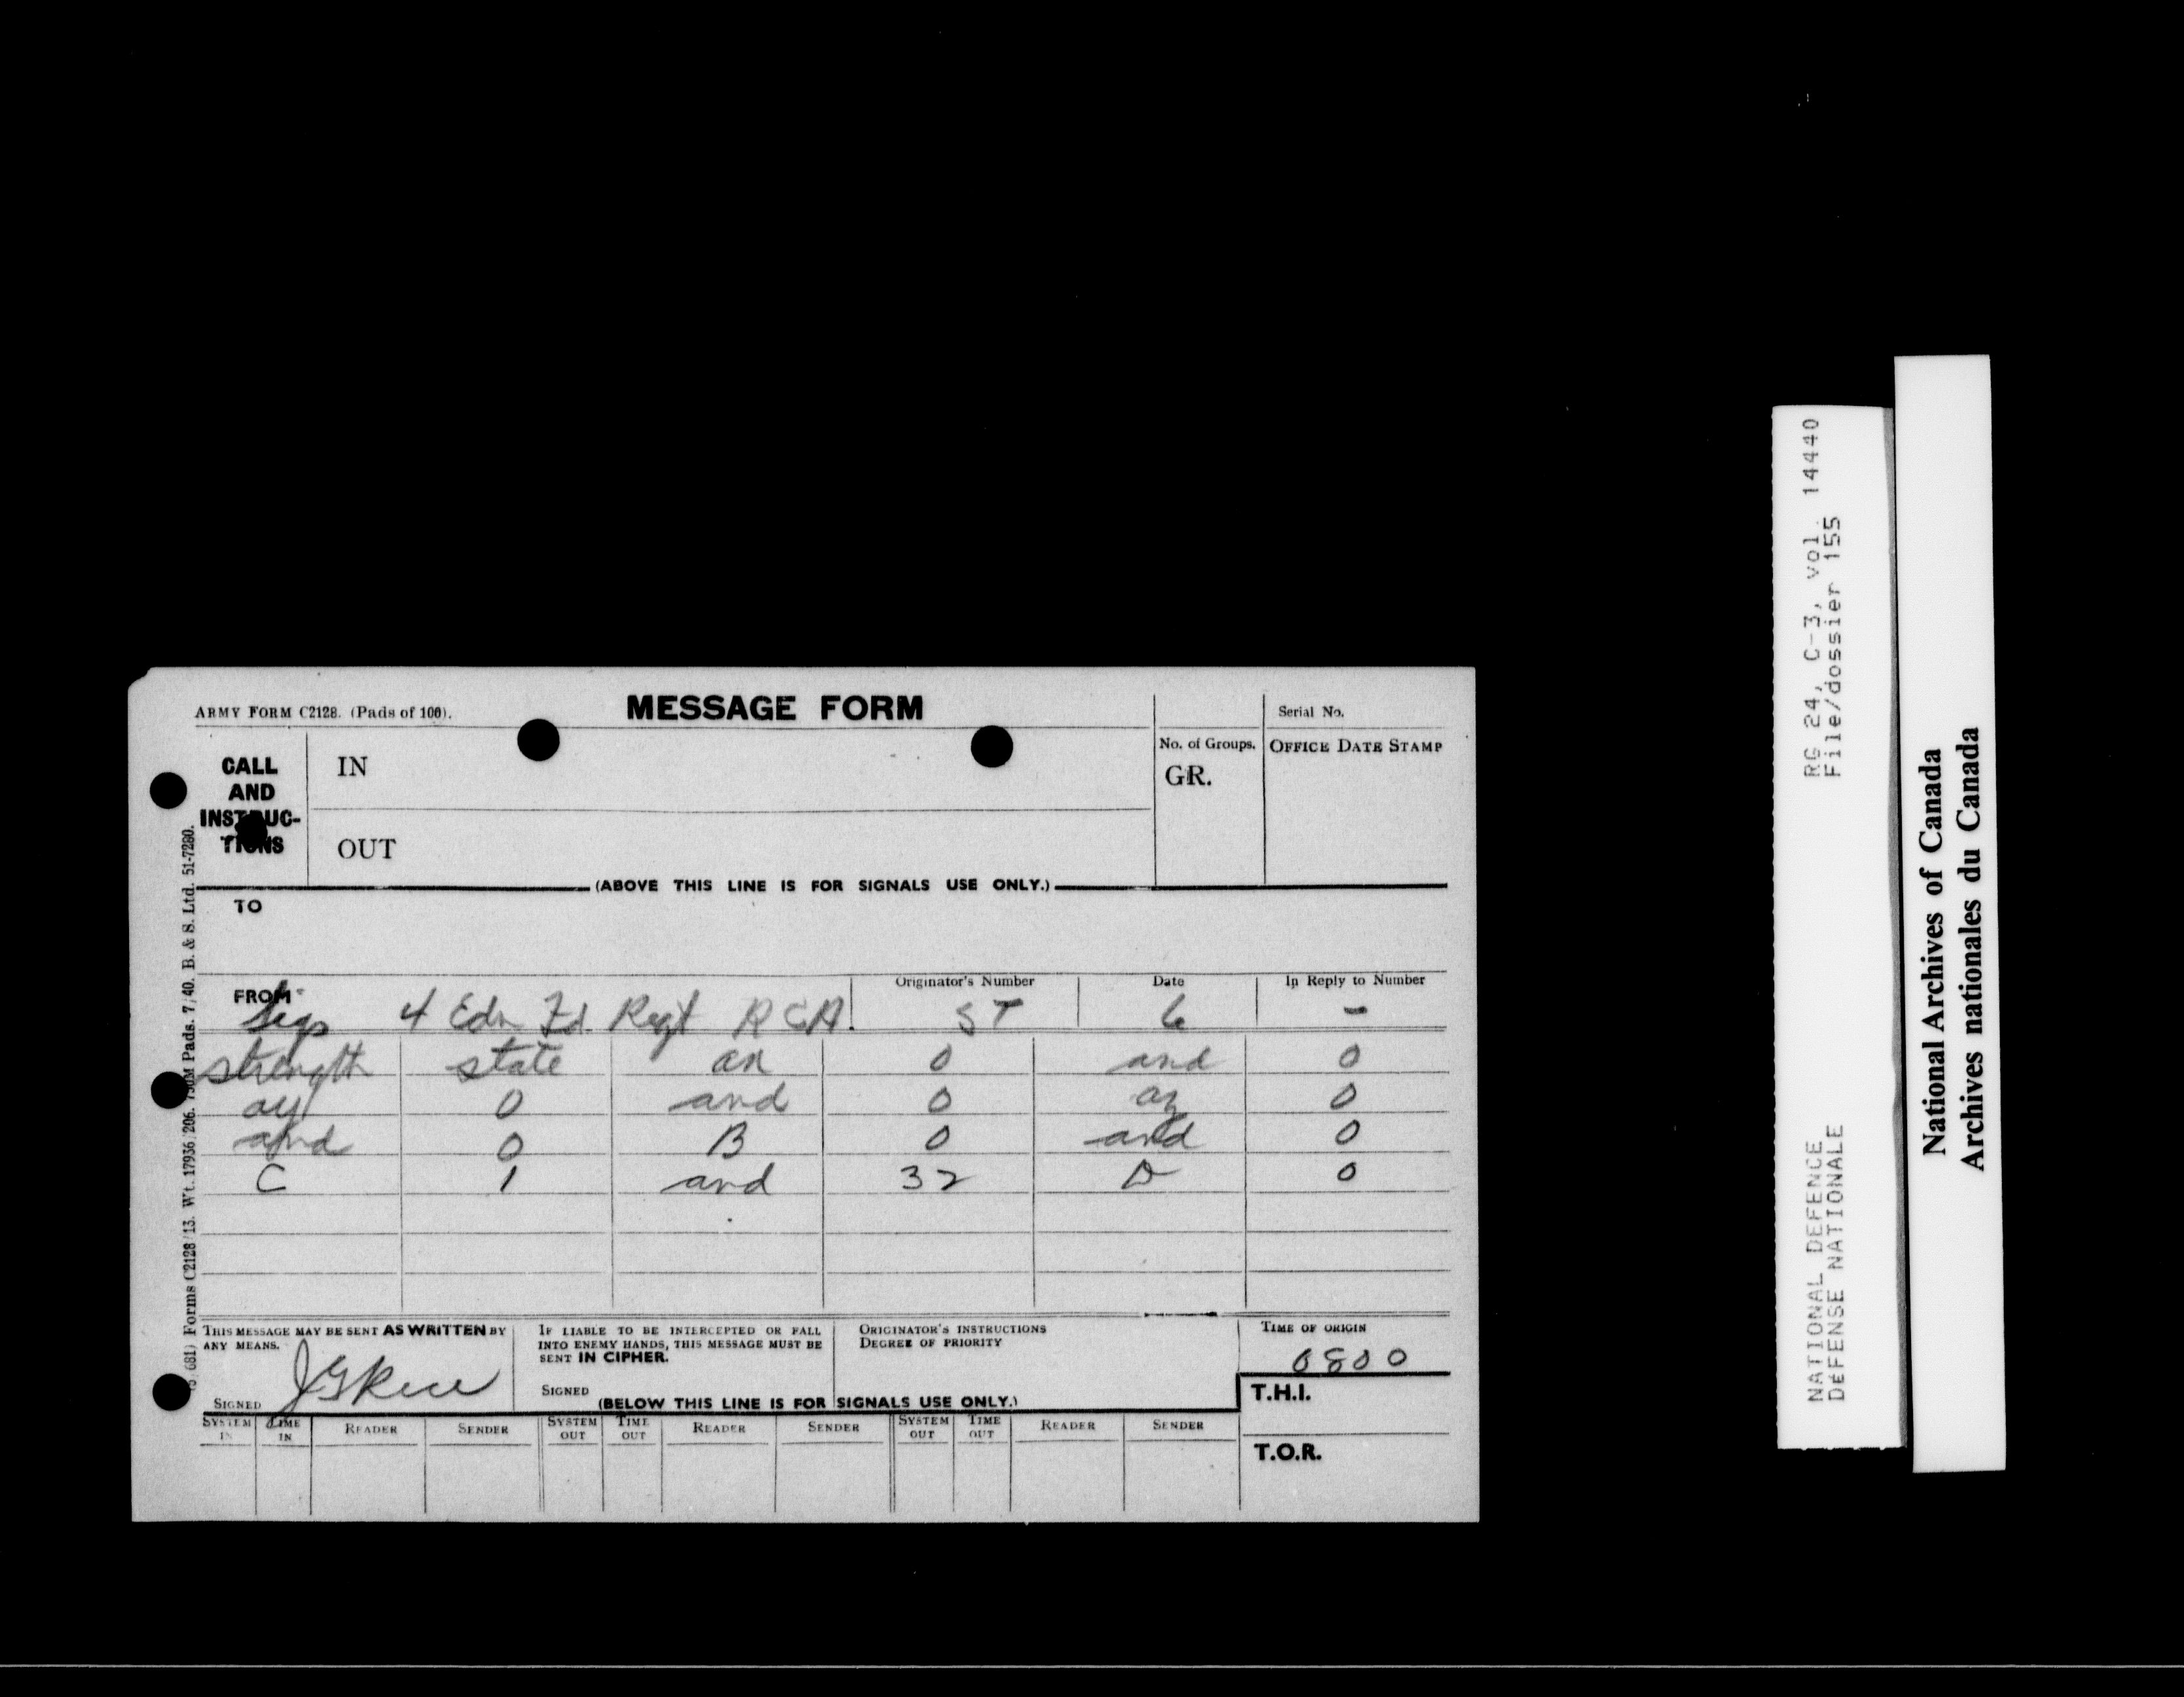 ARMY FORM C2128. (Pads of 100).
MESSAGE FORM
Serial No.
CALL AND INSTRUCTIONS
IN
OUT
No. of Groups.
GR.
OFFICE DATE STAMP
(ABOVE THIS LINE IS FOR SIGNALS USE ONLY.)
TO
FROM Sigs 4 Cdn Fd. Regt RCA.
Originator's Number ST
Date 6
In Reply to Number -
strength state ax 0 and 0
ay 0 and 0 az 0
and 0 B 0 and 0
C 1 and 32 D 0
THIS MESSAGE MAY BE SENT AS WRITTEN BY
ANY MEANS.
SIGNED
IF LIABLE TO BE INTERCEPTED OR FALL
INTO ENEMY HANDS, THIS MESSAGE MUST BE
SENT IN CIPHER.
SIGNED
ORIGINATOR'S INSTRUCTIONS
DEGREE OF PRIORITY
TIME OF ORIGIN
0800
(BELOW THIS LINE IS FOR SIGNALS USE ONLY.)
T.H.I.
T.O.R.
SYSTEM IN TIME IN READER SENDER SYSTEM OUT TIME OUT READER SENDER SYSTEM OUT TIME OUT READER SENDER
681) Forms C2128/13. Wt. 17936/206. 750M Pads. 7/40. B. & S. Ltd. 51-7280.
RG 24, C-3, vol. 14440
File/dossier 155
NATIONAL DEFENCE
DEFENSE NATIONALE
National Archives of Canada
Archives nationales du Canada